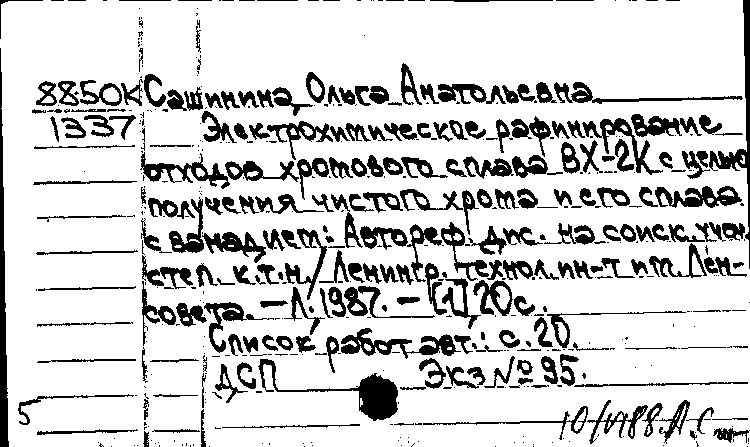 88-50К Сашинина, Ольга Анатольевна.
1337 Электрохимическое рафинирование
отходов хромового сплава ВХ-2К с целью
получения чистого хрома и его сплава
с ванадием: Автореф. дис. на соиск. учен.
степ. к.т.н. / Ленингр. технол. ин-т им. Лен-
совета. — Л. 1987. — [1] 20с.
Список работ авт.: с. 20.
ДСП Экз № 95.
5